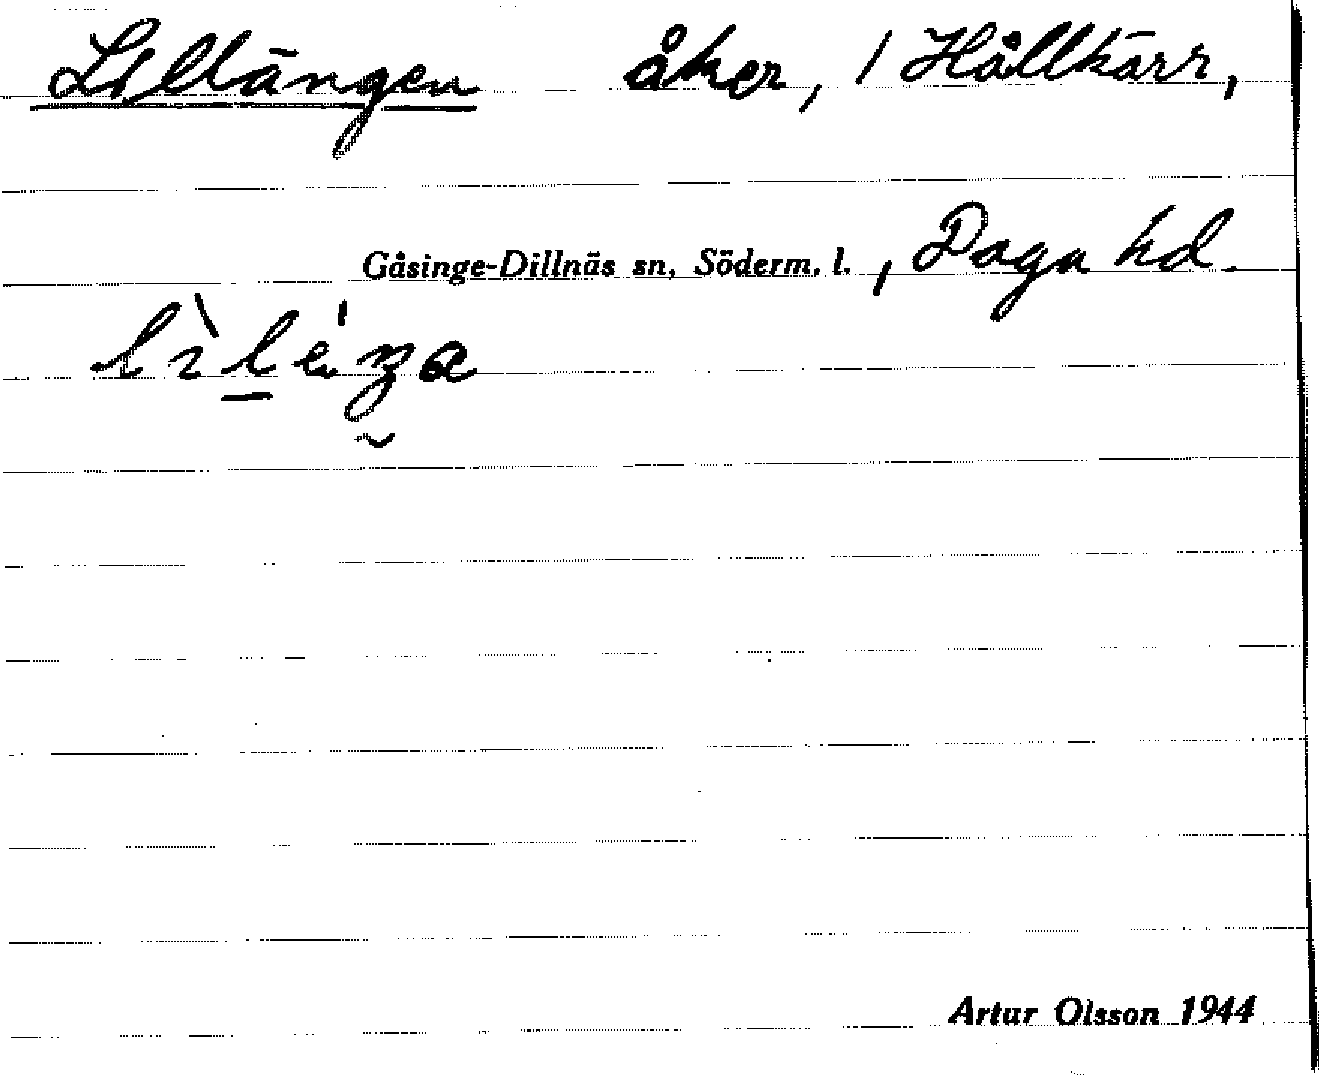 Lillängen åker, / Hållkärr,
Gåsinge-Dillnäs sn, Söderm. l., Daga hd.
Artur Olsson 1944